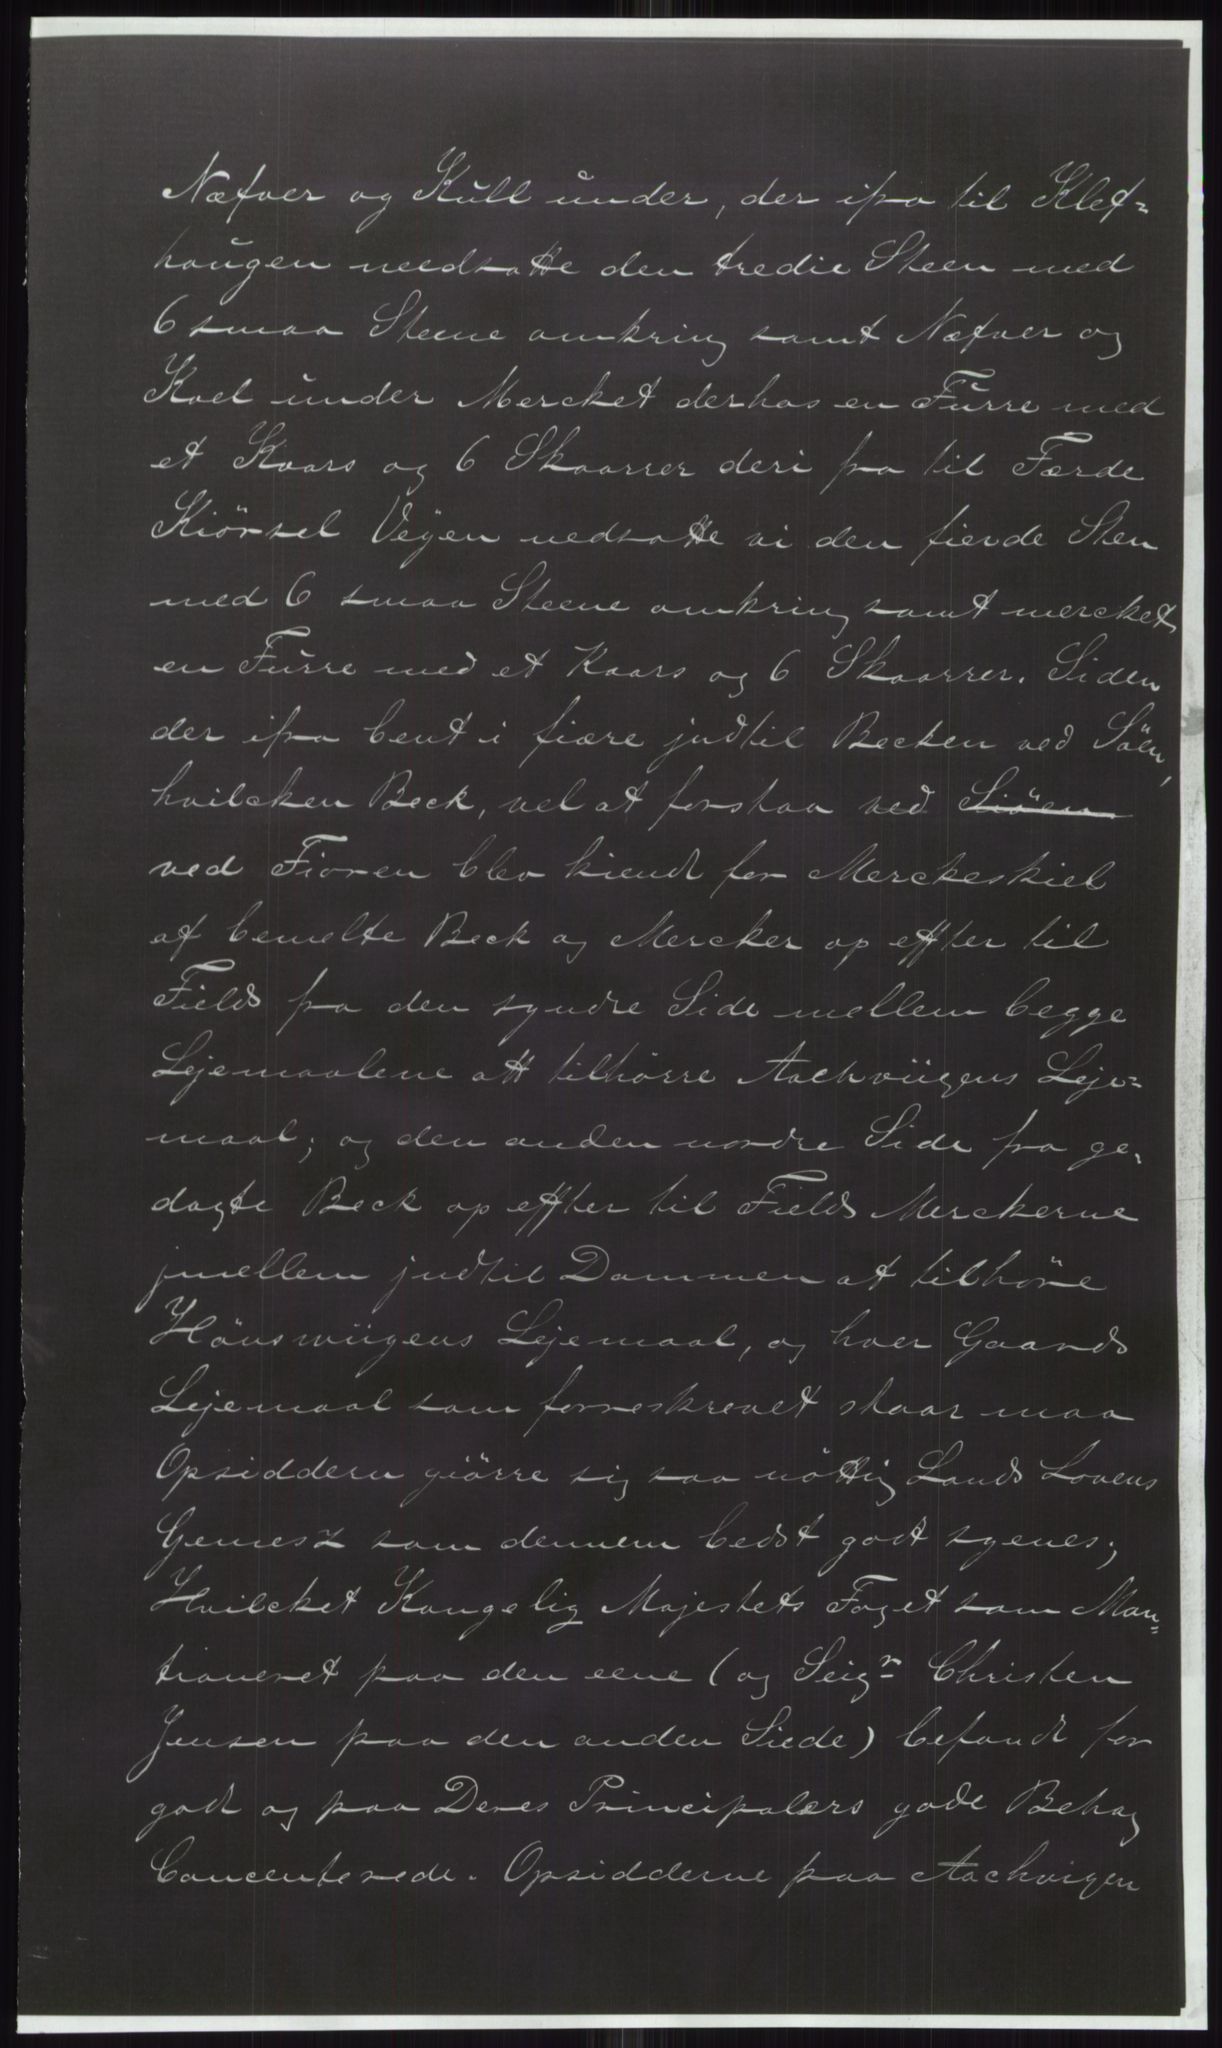 Næfver og Kull under, der ifra til Klef-
haugen needsatte den tredie Steen med
6 smaa Steene omkring samt Næfver og
Koel under Mercket derhos en Furre med
et Kaars og 6 Skaarrer deri fra til Færde
Kiörsel Veÿen nedsatte vi den fierde Sten
med 6 smaa Steene omkring samt mercket
en Furre med et Kaars og 6 Skaarrer. Siden
der ifra bent i fiære judtil Becken ved Söen,
hvilcken Beck, vel at forstaa ved Siöen
ved Fioren blev kiendt for Merckeskiel
af bemelte Beck og Mercker op effter til
Fields fra den syndre Side mellem begge
Lejemaalene att tilhörre Aackviigens Leje-
maal; og den anden nordre Side fra ge-
dagte Beck op effter til Fields Merckerne
jmellem judtil Dammen at tilhöre
Hönswiigens Lejemaal, og hver Gaards
Lejemaal som forreskrevet staar maa
Opsiddern giörre sig saa nöttig Lands Lovens
Gemess som dennem bedst godt synes;
Hvilcket Kongelig Majestets Foget som Man-
tioneret paa den eene (og Seigr Christen
Jensen paa den anden Siede) befandt for
godt og paa Deres Principalers gode Behag
Concenterede. Opsidderne paa Aackvigen